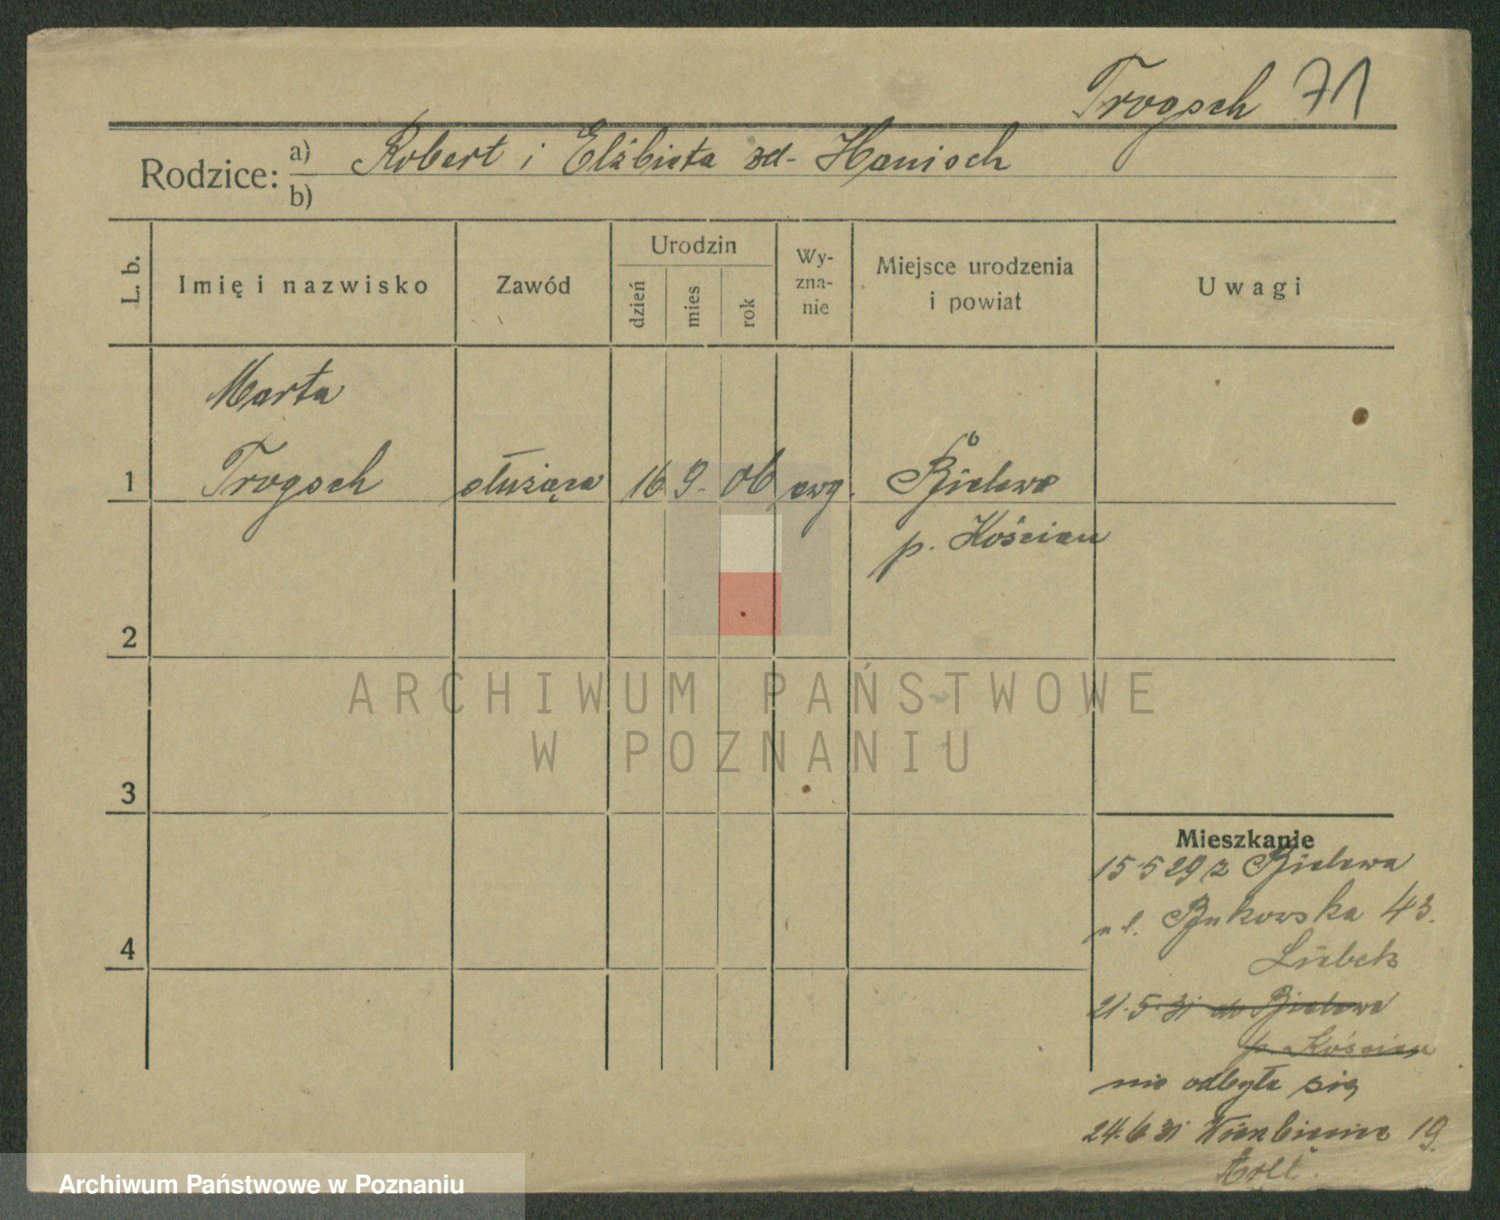 Trogsch 71
Rodzice: a) Robert i Elżbieta zd- Hanisch
b)
L. b.
Imię i nazwisko
Zawód
Urodzin
dzień
mies
rok
Wy-
zna-
nie
Miejsce urodzenia
i powiat
Uwagi
Marta
1 Trogsch służąca 16 9. 06 ewg. Bielewo
p. Kościan
2
ARCHIWUM PAŃSTWOWE
W POZNANIU
3
Mieszkanie
15 5 29 z Bielewa
ul. Bukowska 43.
4
Lübek
21.5.31 do Bielewa
p. Kościan
nie odbyła się
24.6 31 19.
Archiwum Państwowe w Poznaniu